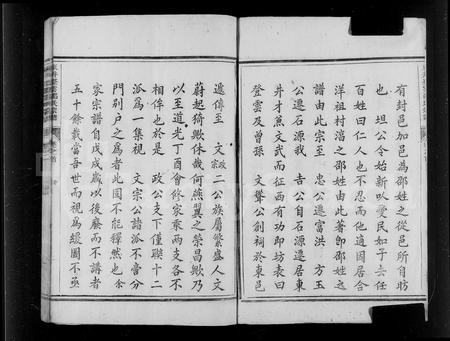 有封邑加邑為邵姓之從邑所自昉
也 坦公令始新以愛民如子去任
百姓曰仁人也不忍而他適因居合
洋祖村涪之邵姓由此著卽邵姓之
譜由此宗至 忠公遷富洪 方玉
公遷石源我 吉公自石源遷居東
井才熏文武而征西有功即坊表曰
登雲及曾孫 文聳公創祠於東邑
遞傳至 文宗政二公族屬繁盛人文
蔚起猗歟休哉何燕翼之榮昌歟乃
以至道光丁酉會修家乘兩支各不
相侔也於是 政公支下僅聯十二
派為一集視 文宗公諸派不啻分
門別戶之為者此固不能釋然也余
家宗譜自戊戌歲以後廢而不講者
五十餘載當吾世而視為緩圖不亟